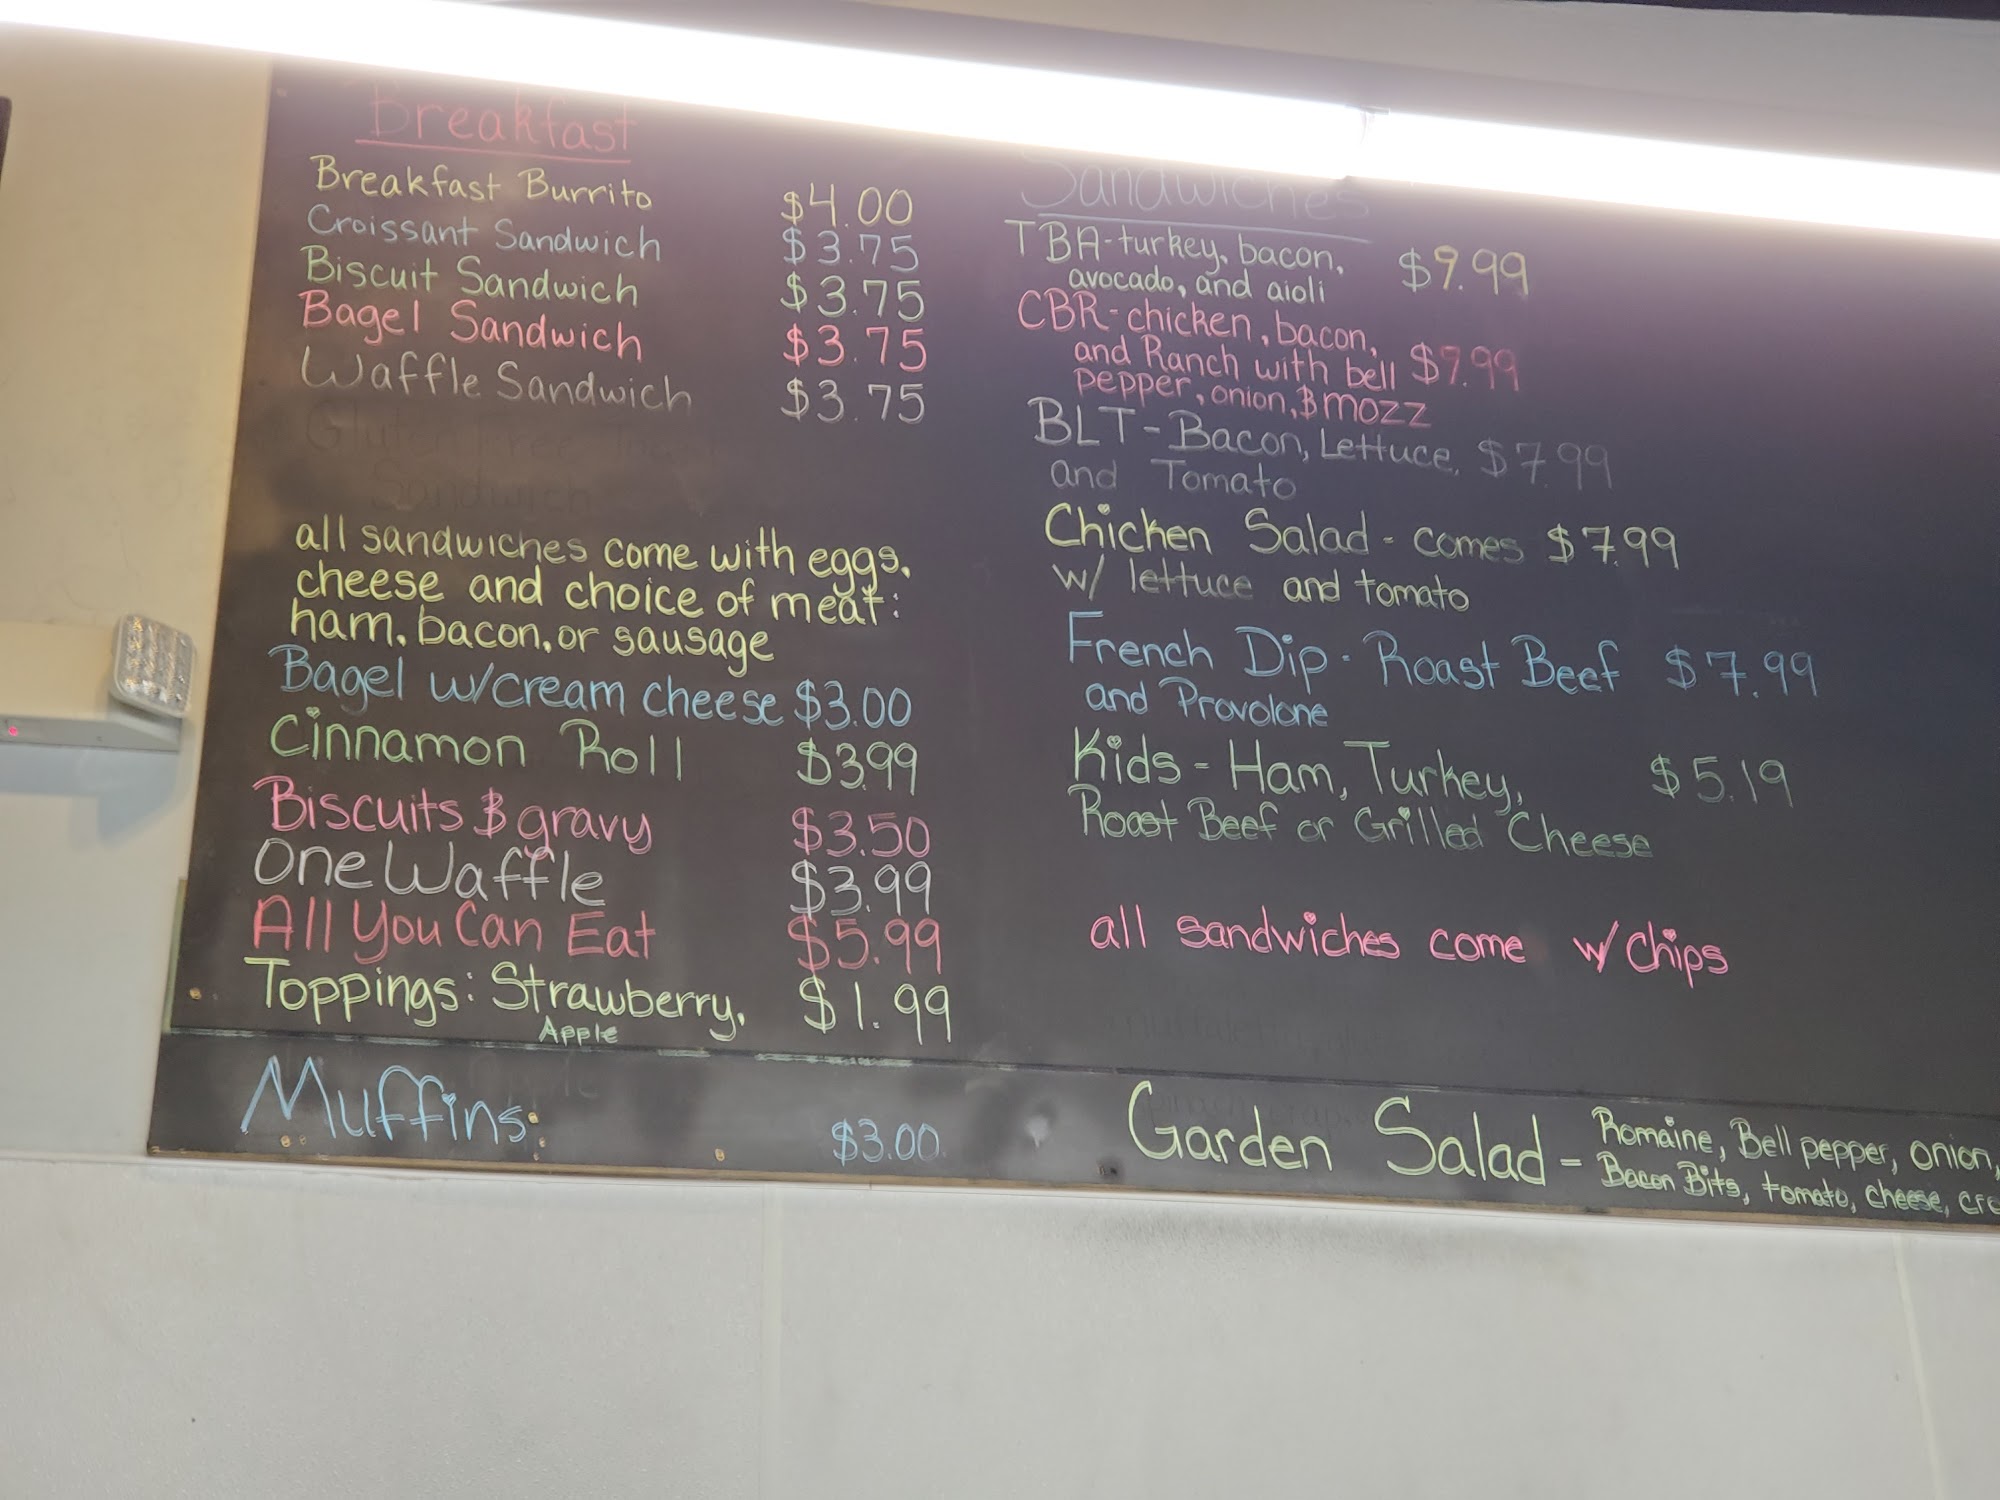 Breakfast
Breakfast Burrito $4.00
Croissant Sandwich $3.75
Biscuit Sandwich $3.75
Bagel Sandwich $3.75
Waffle Sandwich $3.75
Gluten Free
Sandwich
all sandwiches come with eggs,
cheese and choice of meat:
ham, bacon, or sausage
Bagel w/cream cheese $3.00
Cinnamon Roll $3.99
Biscuits & gravy $3.50
One Waffle $3.99
All You Can Eat $5.99
Toppings: Strawberry, $1.99
Apple
Muffins: $3.00
Sandwiches
TBA-turkey, bacon, $9.99
avocado, and aioli
CBR-chicken, bacon,
and Ranch with bell $9.99
pepper, onion, & mozz
BLT-Bacon, Lettuce, $7.99
and Tomato
Chicken Salad - comes $7.99
w/ lettuce and tomato
French Dip - Roast Beef $7.99
and Provolone
Kids - Ham, Turkey, $5.19
Roast Beef or Grilled Cheese
all sandwiches come w/ Chips
Garden Salad - Romaine, Bell pepper, onion,
Bacon Bits, tomato, cheese,